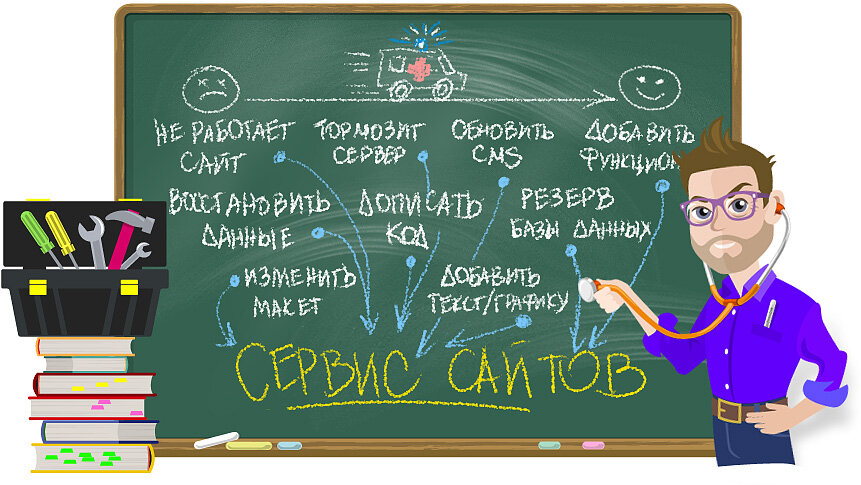 НЕ РАБОТАЕТ
САЙТ
ТОРМОЗИТ
СЕРВЕР
ОБНОВИТЬ
CMS
ДОБАВИТЬ
ФУНКЦИОН
ВОССТАНОВИТЬ
ДАННЫЕ
ДОПИСАТЬ
КОД
РЕЗЕРВ
БАЗЫ ДАННЫХ
ИЗМЕНИТЬ
МАКЕТ
ДОБАВИТЬ
ТЕКСТ/ГРАФИКУ
СЕРВИС САЙТОВ